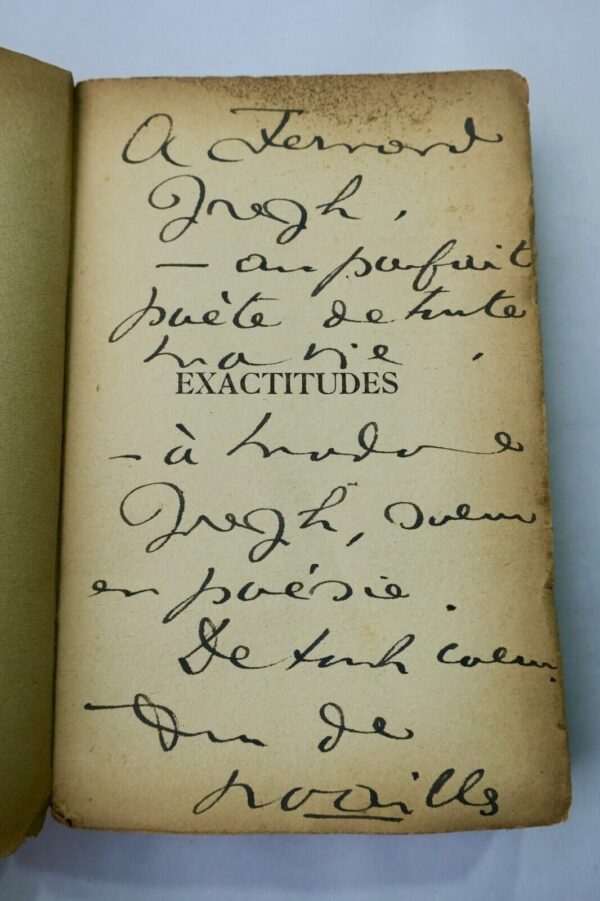 A Fernand
Gregh,
— au parfait
poète de toute
ma vie,
EXACTITUDES
— à madame
Gregh, soeur
en poésie.
De tout coeur
Anna de
Noailles